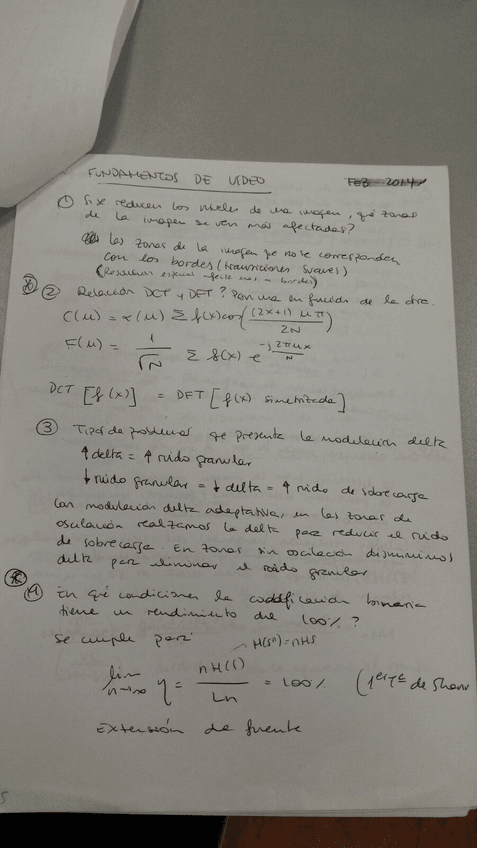 FUNDAMENTOS DE VIDEO FEB 2014
① Si se reducen los niveles de una imagen, qué zonas
de la imagen se ven más afectadas?
las zonas de la imagen que no se corresponden
con los bordes (transiciones suaves)
(Resolución espacial afecta más a bordes)
② Relación DCT y DFT? Pon una en función de la otra.
C(μ) = α(μ) Σ f(x) cos((2x+1) μ π / 2N)
F(μ) = 1/√N Σ f(x) e^(-j 2πμx/N)
DCT [f(x)] = DFT [f(x) simetrizada]
③ Tipos de problemas que presenta la modulación delta
↑ delta = ↑ ruido granular
↓ ruido granular = ↓ delta = ↑ ruido de sobrecarga
Con modulación delta adaptativa, en las zonas de
oscilación realzamos la delta para reducir el ruido
de sobrecarga. En zonas sin oscilación disminuimos
delta para eliminar el ruido granular
④ En qué condiciones la codificación binaria
tiene un rendimiento del 100%?
Se cumple para H(Sⁿ) = nH(S)
lim n→∞ η = nH(S) / Ln = 100% (1er Tª de Shann
Extensión de fuente